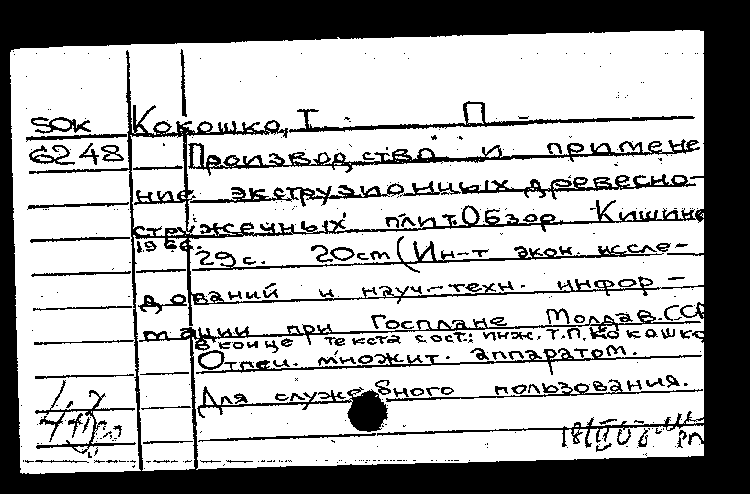 SOK Кокошко, Т. П.
6248 Производство и примене
ние экструзионных древесно-
стружечных плит. Обзор. Кишине
1966.
29 с. 20 cm (Ин-т экон. иссле-
дований и науч.-техн. инфор-
мации при Госплане Молдав. ССР
В конце текста сост.: инж. Т.П. Кокошко
Отпеч. множит. аппаратом.
Для служебного пользования.